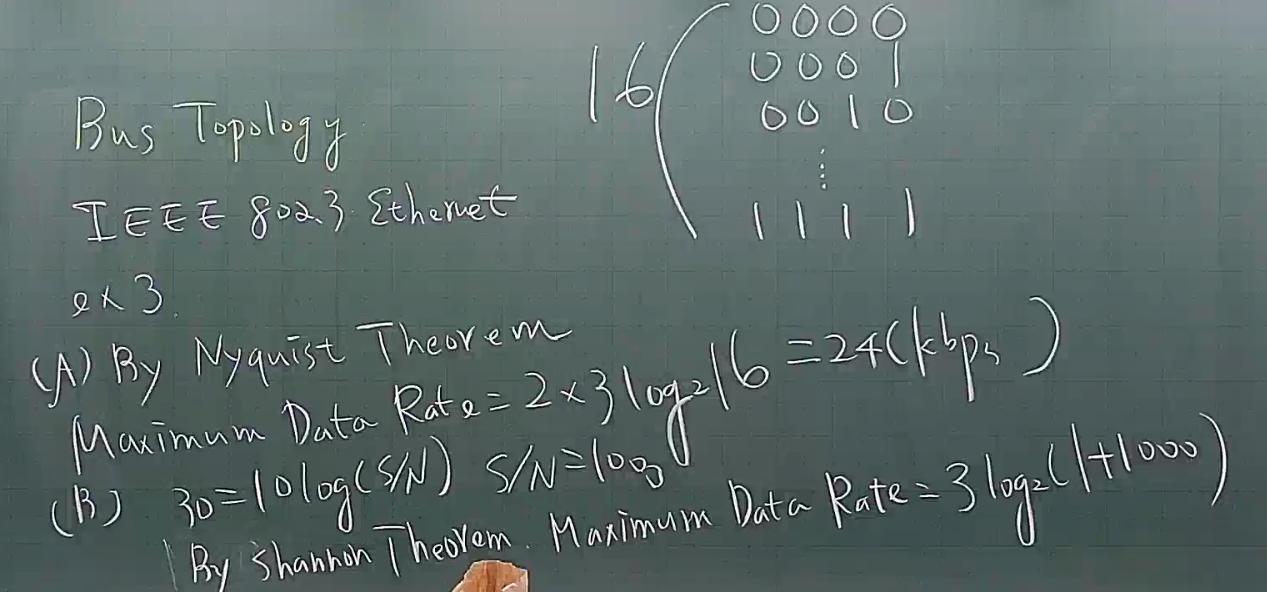 Bus Topology
IEEE 802.3 Ethernet
16
0000
0001
0010
⋮
1111
ex 3.
(A) By Nyquist Theorem
Maximum Data Rate = 2×3 log₂16 = 24(kbps)
(B) 30=10log(S/N) S/N=1000
By Shannon Theorem. Maximum Data Rate = 3 log₂(1+1000)